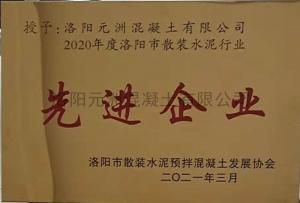 授予：洛阳元洲混凝土有限公司
2020年度洛阳市散装水泥行业
先进企业
洛阳元洲混凝土有限公司
洛阳市散装水泥预拌混凝土发展协会
二〇二一年三月